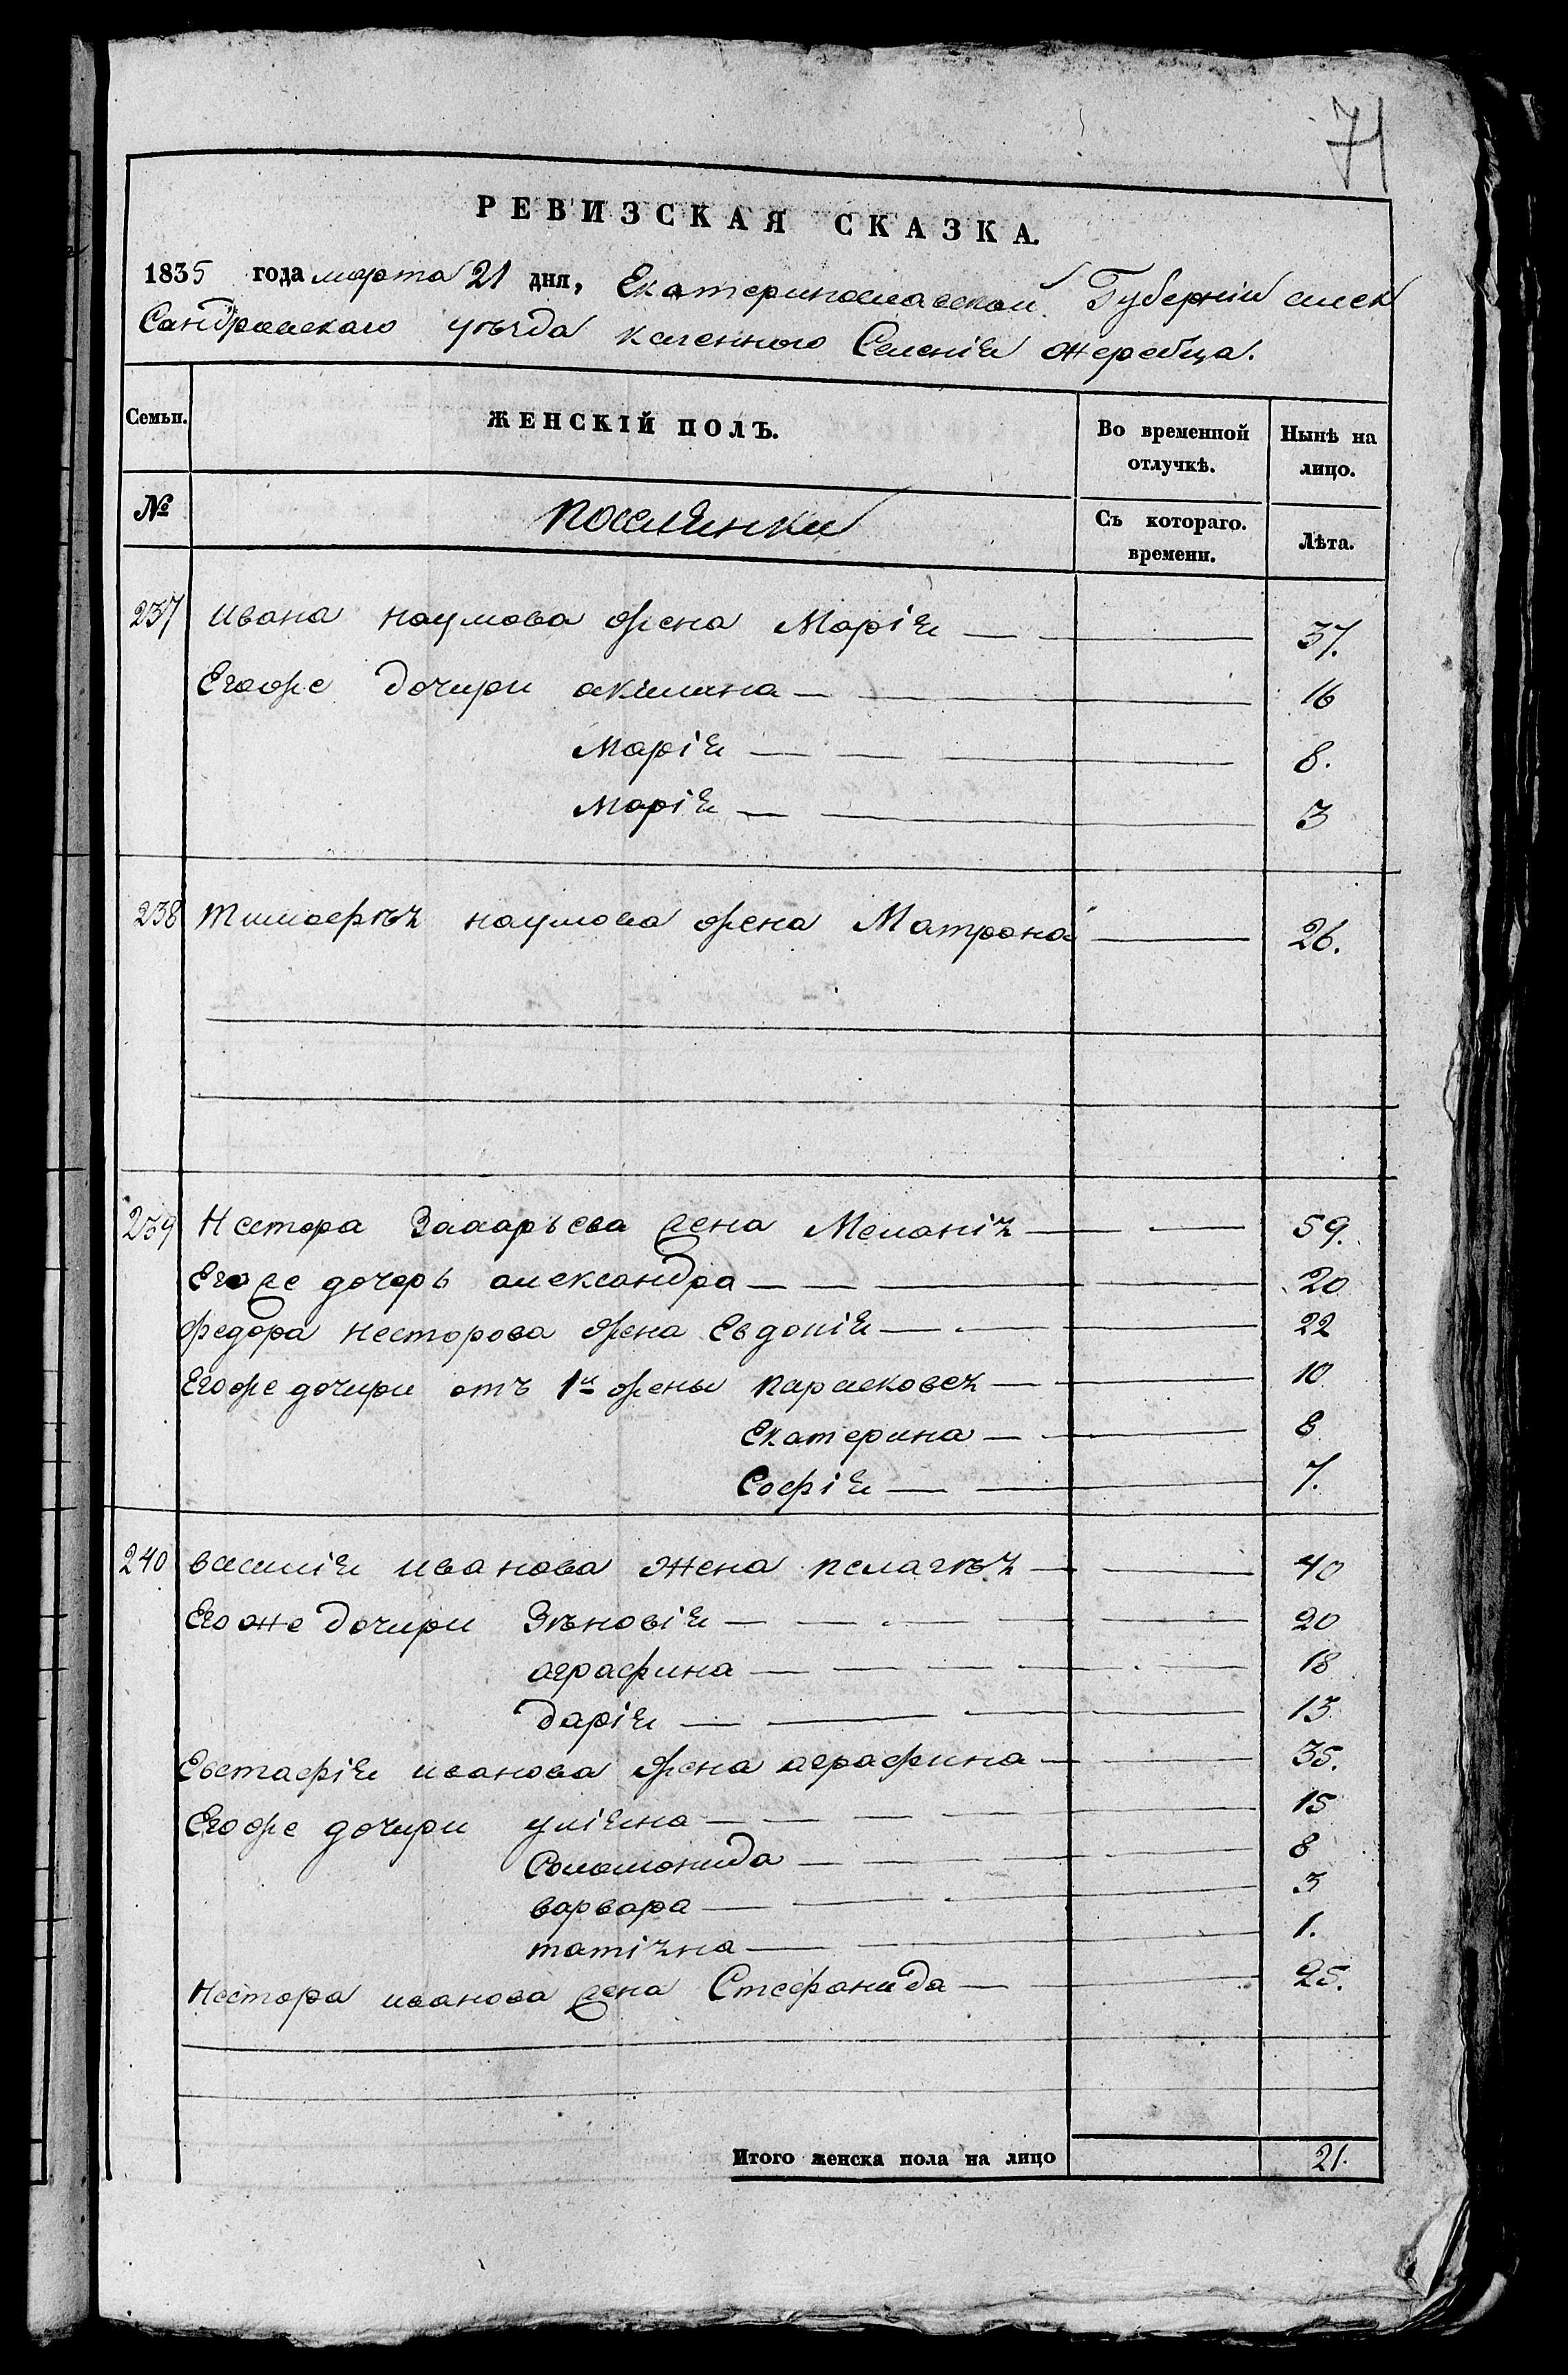 71
РЕВИЗСКАЯ СКАЗКА.
1835 года марта 21 дня, Екатеринославской Губерніи алек
Сандровскаго уѣзда казенного Селенія жеребца.
Семьи.
ЖЕНСКІЙ ПОЛЪ.
Во временной отлучкѣ.
Ныпѣ на лицо.
№
поселянки
Съ котораго. времени.
Лѣта.
237 ивана наумова жена Марія — 37.
Егоже дочири акилина — 16
Марія — 8.
Марія — 3
238 Тимофѣя наумова жена Матрона — 26.
239 Нестора Захарьева жена Меланія — 59.
Егоже дочерь александра — 20
федора несторова жена Евдокія — 22
Егоже дочири отъ 1й жены парасковея — 10
Екатерина — 8
Софія — 7.
240 василія иванова жена пелагѣя — 40
Егоже дочири Зѣновія — 20
аграфина — 18
дарія — 13
Евстафія иванова жена аграфина — 35.
Егоже дочири уліяна — 15
Соломонида — 8
варвара — 3
татіяна — 1.
Нестора иванова жена Стефанида — 25.
Итого женска пола на лицо 21.